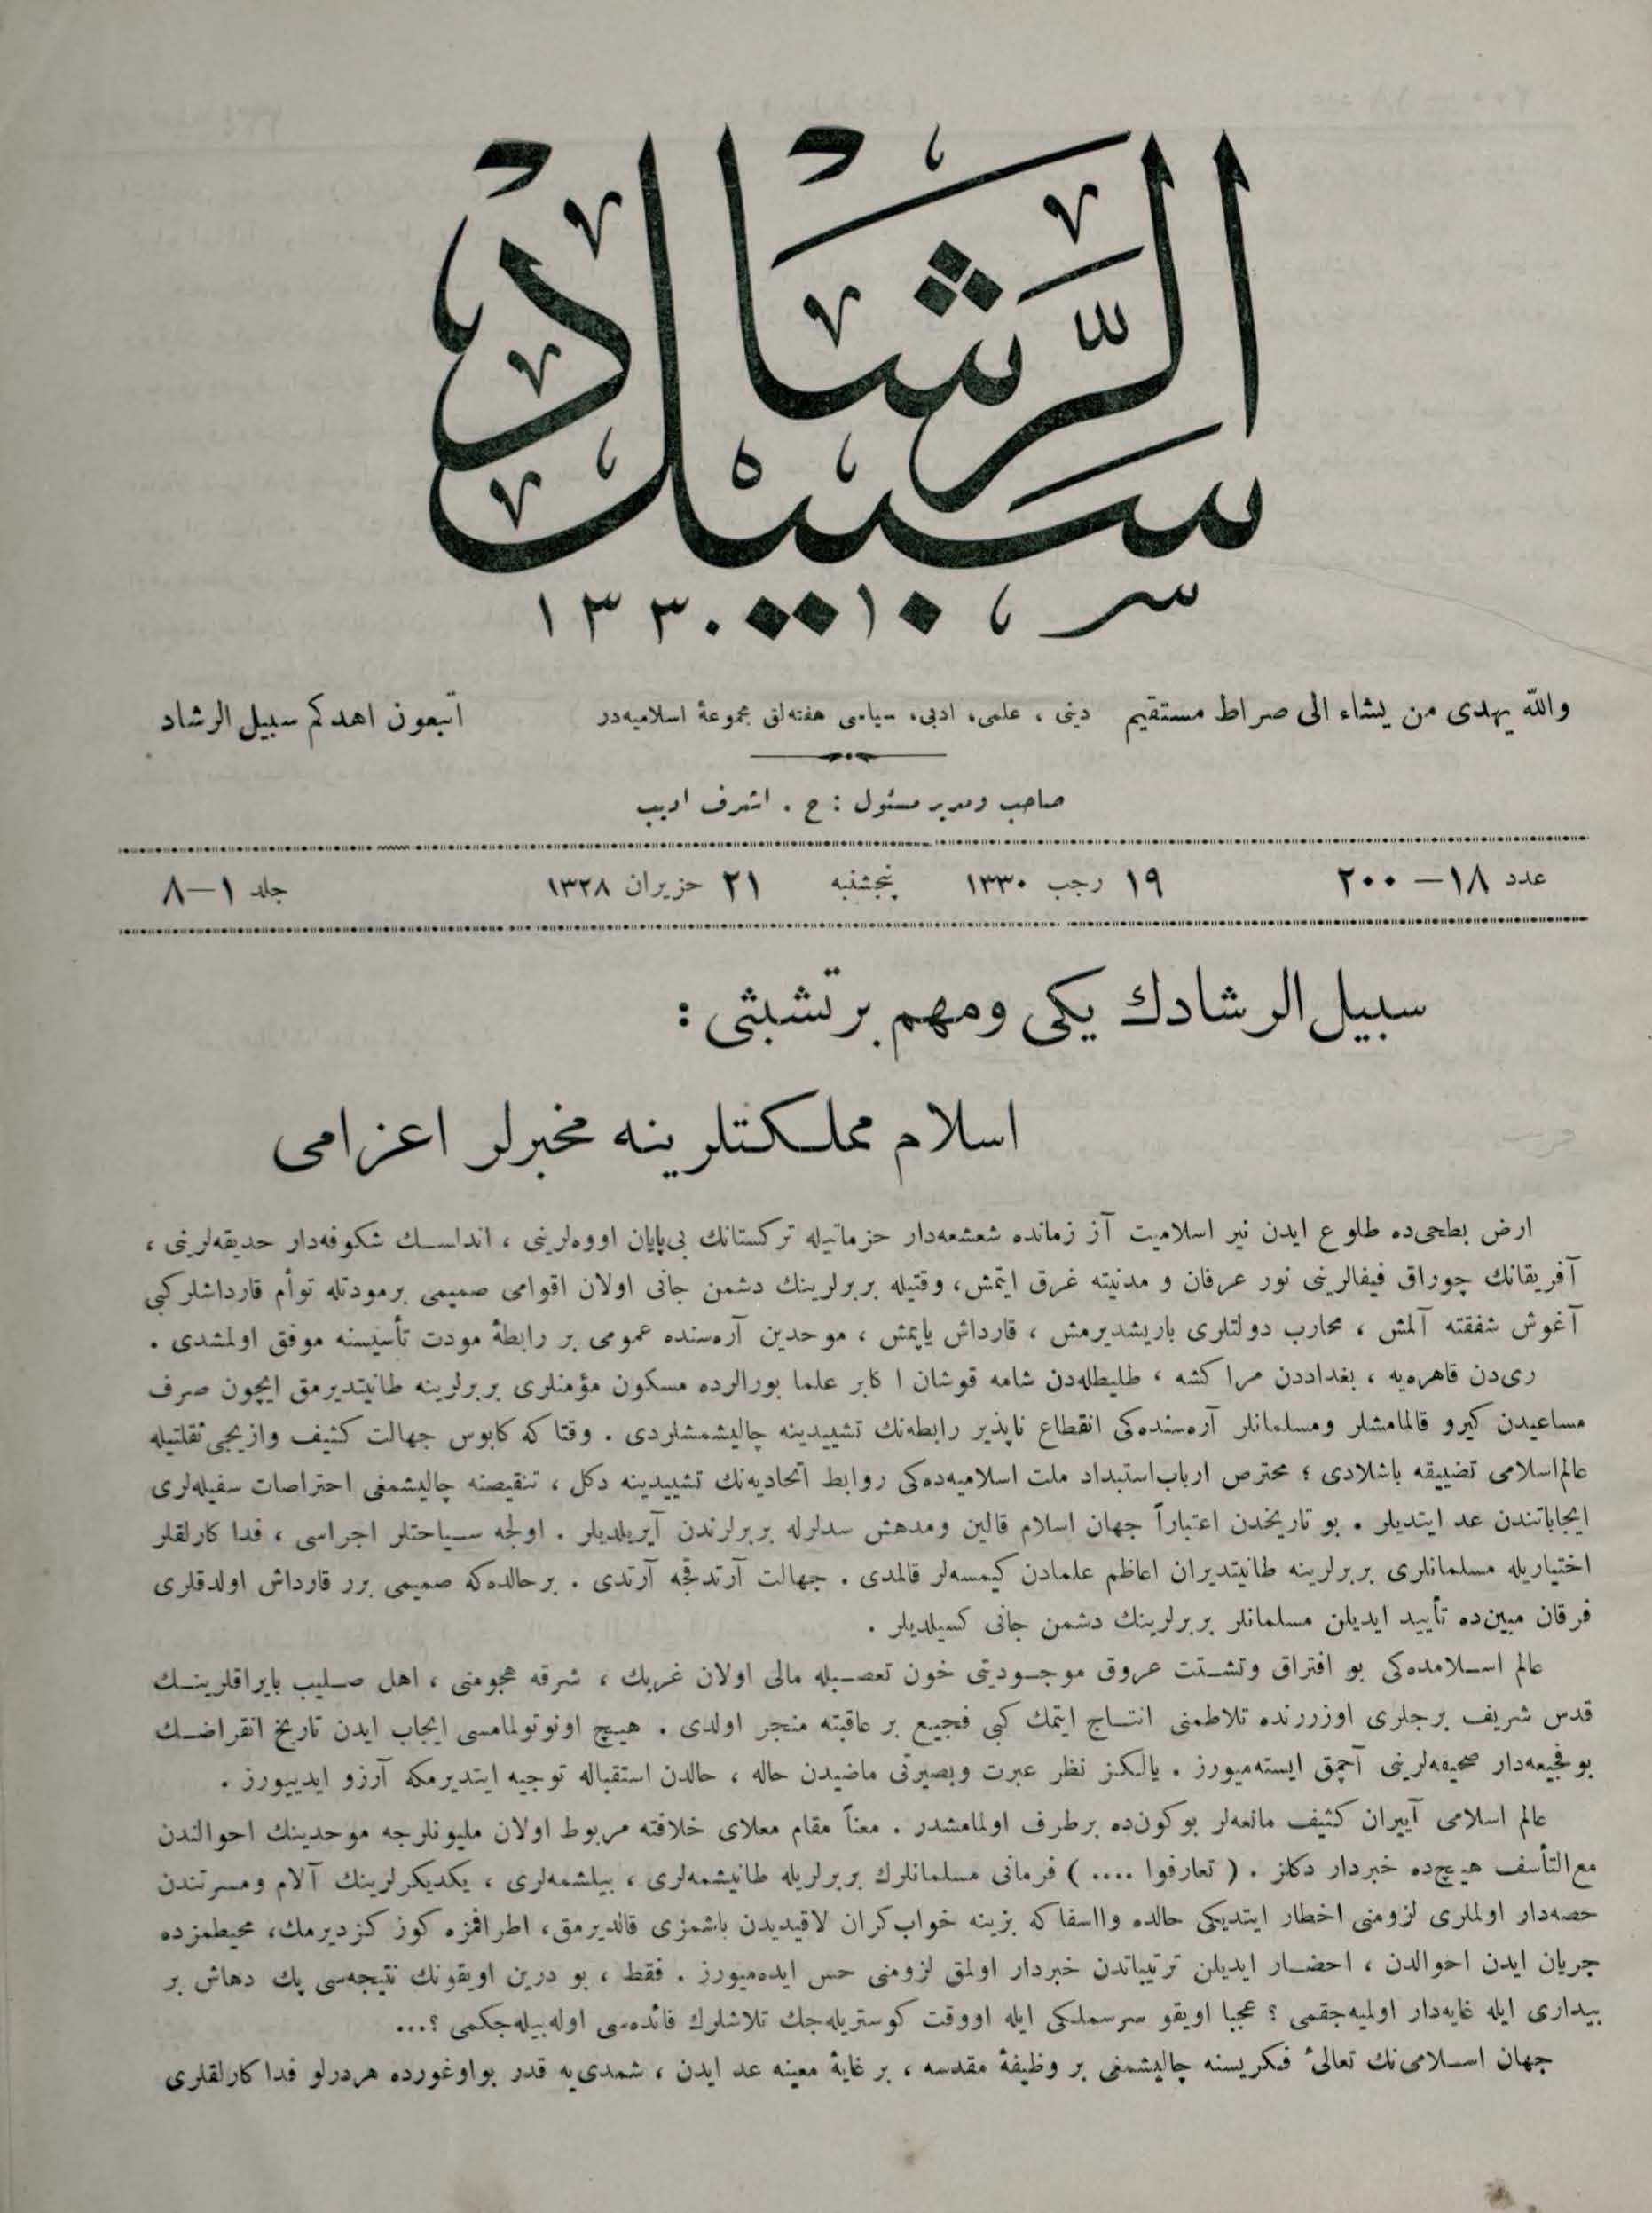 سبيل الرشاد
١٣٣٠
والله يهدى من يشاء الى صراط مستقيم
دينى ، علمى، ادبى، سياسى هفته‌لق مجموعهٔ اسلاميه‌در
اتبعون اهدكم سبيل الرشاد
صاحب ومدير مسئول : ح . اشرف اديب
عدد ١٨ — ٢٠٠ ١٩ رجب ١٣٣٠ پنجشنبه ٢١ حزيران ١٣٢٨ جلد ١—٨
سبيل الرشادك يكى ومهم بر تشبثى :
اسلام مملكتلرينه مخبرلر اعزامى
ارض بطحى‌ده طلوع ايدن نير اسلاميت آز زمانده شعشعه‌دار حزماتيله تركستانك بى‌پايان اووه‌لرينى ، اندلسك شكوفه‌دار حديقه‌لرينى ،
آفريقانك چوراق فيفالرينى نور عرفان و مدنيته غرق ايتمش، وقتيله بربرلرينك دشمن جانى اولان اقوامى صميمى برمودتله توأم قارداشلر كبى
آغوش شفقته آلمش ، محارب دولتلرى باريشديرمش ، قارداش ياپمش ، موحدين آره‌سنده عمومى بر رابطهٔ مودت تأسيسنه موفق اولمشدى .
رى‌دن قاهره‌يه ، بغداددن مراكشه ، طليطله‌دن شامه قوشان اكابر علما بورالرده مسكون مؤمنلرى بربرلرينه طانيتديرمق ايچون صرف
مساعيدن كيرو قالمامشلر ومسلمانلر آره‌سنده‌كى انقطاع ناپذير رابطه‌نك تشييدينه چاليشمشلردى . وقتا كه كابوس جهالت كثيف وازيجى ثقلتيله
عالم‌اسلامى تضييقه باشلادى ؛ محترص ارباب‌استبداد ملت اسلاميه‌ده‌كى روابط اتحاديه‌نك تشييدينه دكل ، تنقيصنه چاليشمغى احتراصات سفيله‌لرى
ايجاباتندن عد ايتديلر . بو تاريخدن اعتباراً جهان اسلام قالين ومدهش سدلرله بربرلرندن آيريلديلر . اولجه سياحتلر اجراسى ، فداكارلقلر
اختياريله مسلمانلرى بربرلرينه طانيتديران اعاظم علمادن كيمسه‌لر قالمدى . جهالت آرتدقجه آرتدى . برحالده‌كه صميمى برر قارداش اولدقلرى
فرقان مبين‌ده تأييد ايديلن مسلمانلر بربرلرينك دشمن جانى كسيلديلر .
عالم اسلامده‌كى بو افتراق وتشتت عروق موجوديتى خون تعصبله مالى اولان غربك ، شرقه هجومنى ، اهل صليب بايراقلرينك
قدس شريف برجلرى اوزرنده تلاطمنى انتاج ايتمك كبى فجيع بر عاقبته منجر اولدى . هيچ اونوتولمامسى ايجاب ايدن تاريخ انقراضك
بوفجيعه‌دار صحيفه‌لرينى آچمق ايسته‌ميورز . يالكز نظر عبرت وبصيرتى ماضيدن حاله ، حالدن استقباله توجيه ايتديرمكه آرزو ايدييورز .
عالم اسلامى آييران كثيف مانعه‌لر بوكون‌ده برطرف اولمامشدر . معناً مقام معلاى خلافته مربوط اولان مليونلرجه موحدينك احوالندن
مع‌التأسف هيچ‌ده خبردار دكلز . ( تعارفوا .... ) فرمانى مسلمانلرك بربرلريله طانيشمه‌لرى ، بيلشمه‌لرى ، يكديكرلرينك آلام ومسرتندن
حصه‌دار اولملرى لزومنى اخطار ايتديكى حالده وااسفا كه بزينه خواب‌كران لاقيديدن باشمزى قالديرمق، اطرافمزه كوز كزديرمك، محيطمزده
جريان ايدن احوالدن ، احضار ايديلن ترتيباتدن خبردار اولمق لزومنى حس ايده‌ميورز . فقط ، بو درين اويقونك نتيجه‌سى پك دهاش بر
بيدارى ايله غايه‌دار اوليه‌جقمى ؟ عجبا اويقو سرسملكى ايله اووقت كوستريله‌جك تلاشلرك فائده‌سى اوله‌بيله‌جكمى ؟...
جهان اسلامى‌نك تعالىٔ فكريسنه چاليشمغى بر وظيفهٔ مقدسه ، بر غايهٔ معينه عد ايدن ، شمدى‌يه قدر بواوغورده هردرلو فداكارلقلرى